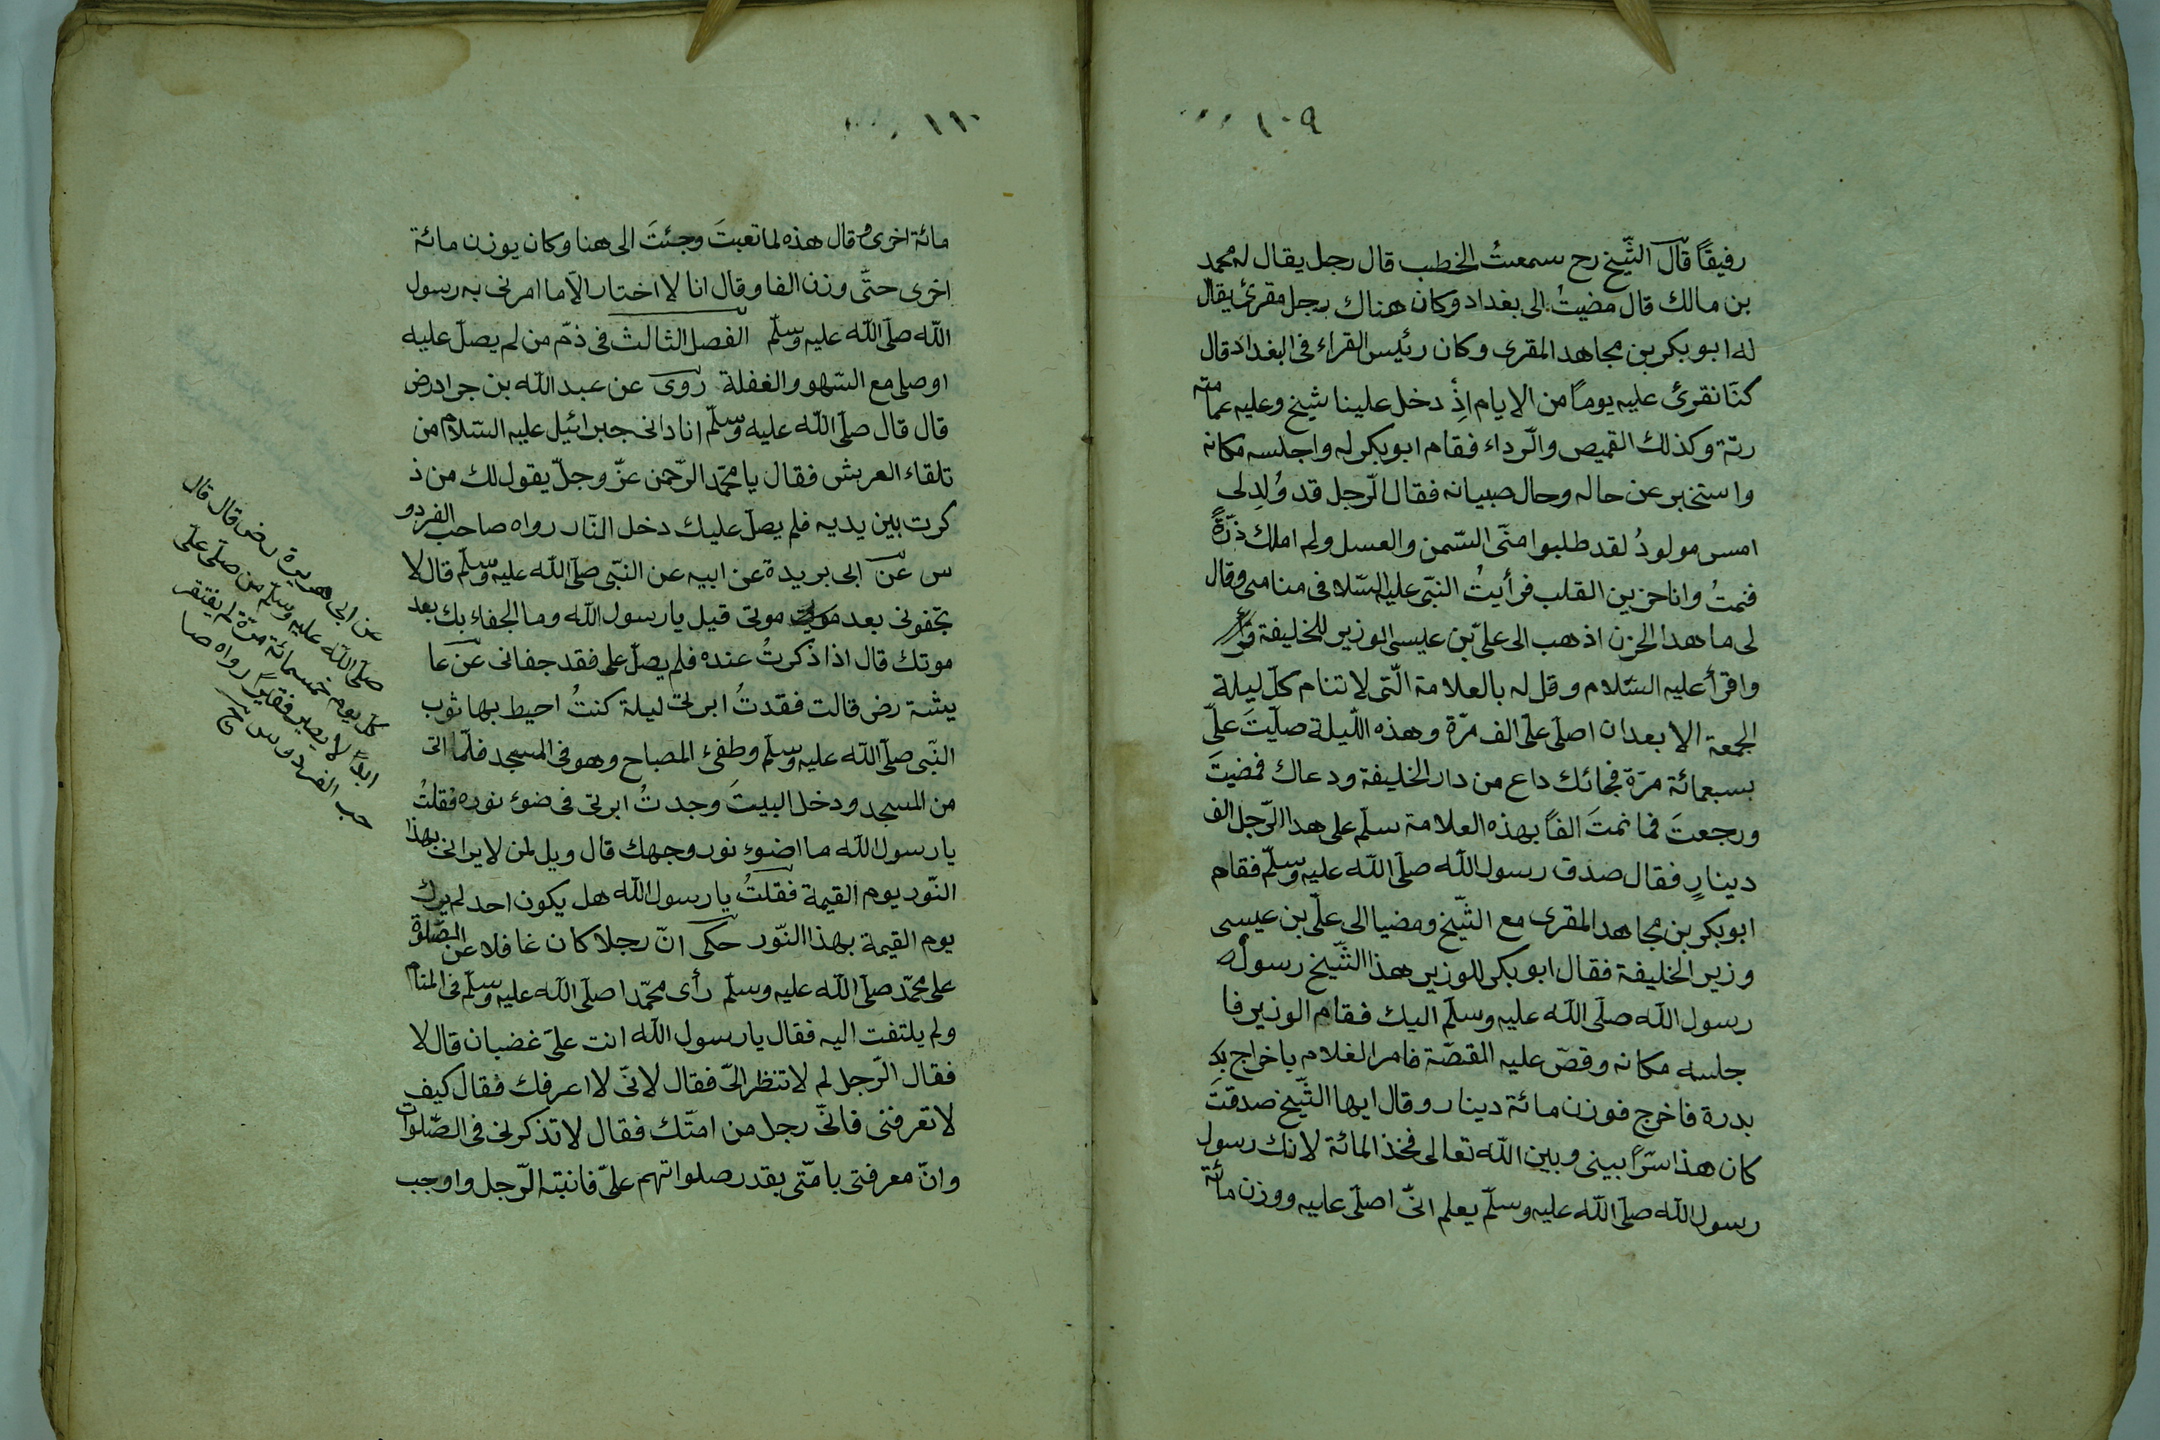 ١٠٩
رفيقًا قال الشّيخ رح سمعتُ الخطب قال رجل يقال له محمد
بن مالك قال مضيتُ الى بغداد وكان هناك رجل مقرئ يقال
له ابو بكر بن مجاهد المقرى وكان رئيس القراء فى البغداد قال
كنّا نقرئ عليه يومًا من الايام اذ دخل علينا شيخ وعليه عمامة
رثّة وكذلك القميص والرّداء فقام ابو بكر له واجلسه مكانه
واستخبر عن حاله وحال صبيانه فقال الرّجل قد وُلِد لى
امس مولودُ لقد طلبوا منّى السّمن والعسل ولم املك ذرّةً
فنمتُ وانا حزين القلب فرأيتُ النبّى عليه السّلا فى منامى وقال
لى ما هدا الحزن اذهب الى علىّ بن عيسى الوزير للخليفة
واقرأ عليه السّلام وقل له بالعلامة الّتى لا تنام كلّ ليلة
الجمعة الا بعد ان اصلى علىّ الف مرّة وهذه اللّيلة صلّيتَ علىّ
بسبعمائة مرّة فجائك داع من دار الخليفة ودعاك فمضيتَ
ورجعتَ فما نمتَ الفًا بهذه العلامة سلّم على هدا الرّجل الف
دينارٍ فقال صدق رسول اللّه صلّى اللّه عليه وسلّم فقام
ابو بكر بن مجاهد المقرى مع الشّيخ ومضيا الى علّى بن عيسى
وزير الخليفة فقال ابو بكر للوزير هذا الشّيخ رسوله
رسول اللّه صلّى اللّه عليه وسلّم اليك فقام الوزير فا
جلسه مكانه وقصّ عليه القصّة فامر الغلام باخراج بد
بدرة فاخرج فوزن مائة دينار وقال ايها الشّيخ صدقتَ
كان هذا سّرًا بينى وبين اللّه تعالى فخذ المائة لانك رسول
رسول اللّه صلّى اللّه عليه وسلّم يعلم انّى اصلّى عليه ووزن مائة
١١٠
مائة اخرى وقال هذه لما تعبتَ وجئتَ الى هنا وكان يوزن مائة
اخرى حتّى وزن الفا وقال انا لا اختار الاّ ما امرنى به رسول
اللّه صلّى اللّه عليه وسلّم الفصل الثالث فى ذمّ من لم يصلّ عليه
او صلى مع السّهو والغفلة روى عن عبد اللّه بن جراد رض
قال قال صلّى اللّه عليه وسلّم انا دانى جبرائيل عليه السّلام من
تلقاء العرش فقال يا محمّد الرّحمن عزّ وجلّ يقول لك من ذ
كرت بين يديه فلم يصلّ عليك دخل النّار رواه صاحب الفردو
س عن ابى بريدة عن ابيه عن النبّى صلّى اللّه عليه وسلّم قال لا
تجفونى بعد موتى قيل يا رسول اللّه وما الجفاء بك بعد
موتك قال اذا ذكرتُ عنده فلم يصلّ على فقد جفانى عن عا
يشة رض قالت فقدتُ ابرتى ليلة كنتُ احيط بها ثوب
النّبى صلّى اللّه عليه وسلّم وطفئ المصباح وهو فى المسجد فلمّا اتى
من المسجد ودخل البيتَ وجدتُ ابرتى فى ضوء نوره فقلتُ
يا رسول اللّه ما اضوء نور وجهك قال ويل لمن لا يرانى بهذا
النّور يوم القيمة فقلتُ يا رسول اللّه هل يكون احد لم يرك
يوم القيمة بهذا النّور حكى انّ رجلا كان غافلا عن الصّلوة
على محمّد صلّى اللّه عليه وسلّم رأى محمّدا صلّى اللّه عليه وسلّم فى المنام
ولم يلتفت اليه فقال يا رسول اللّه انت علىّ غضبان قال لا
فقال الرّجل لم لا تنظر الىّ فقال لانّى لا اعرفك فقال كيف
لا تعرفنى فانّى رجل من امتّك فقال لا تذكرنى فى الصّلوات
وانّ معرفتى بامّتى بقدر صلواتهم علىّ فانتبه الرّجل واوجب
عن ابى هريرة رض قال قال
صلّى اللّه عليه وسلّم من صلّى علىّ
كلّ يوم خمسمائة مرّة لم يفتقر
ابدًا لا يصير فقيرًا رواه صا
حب الفردوس